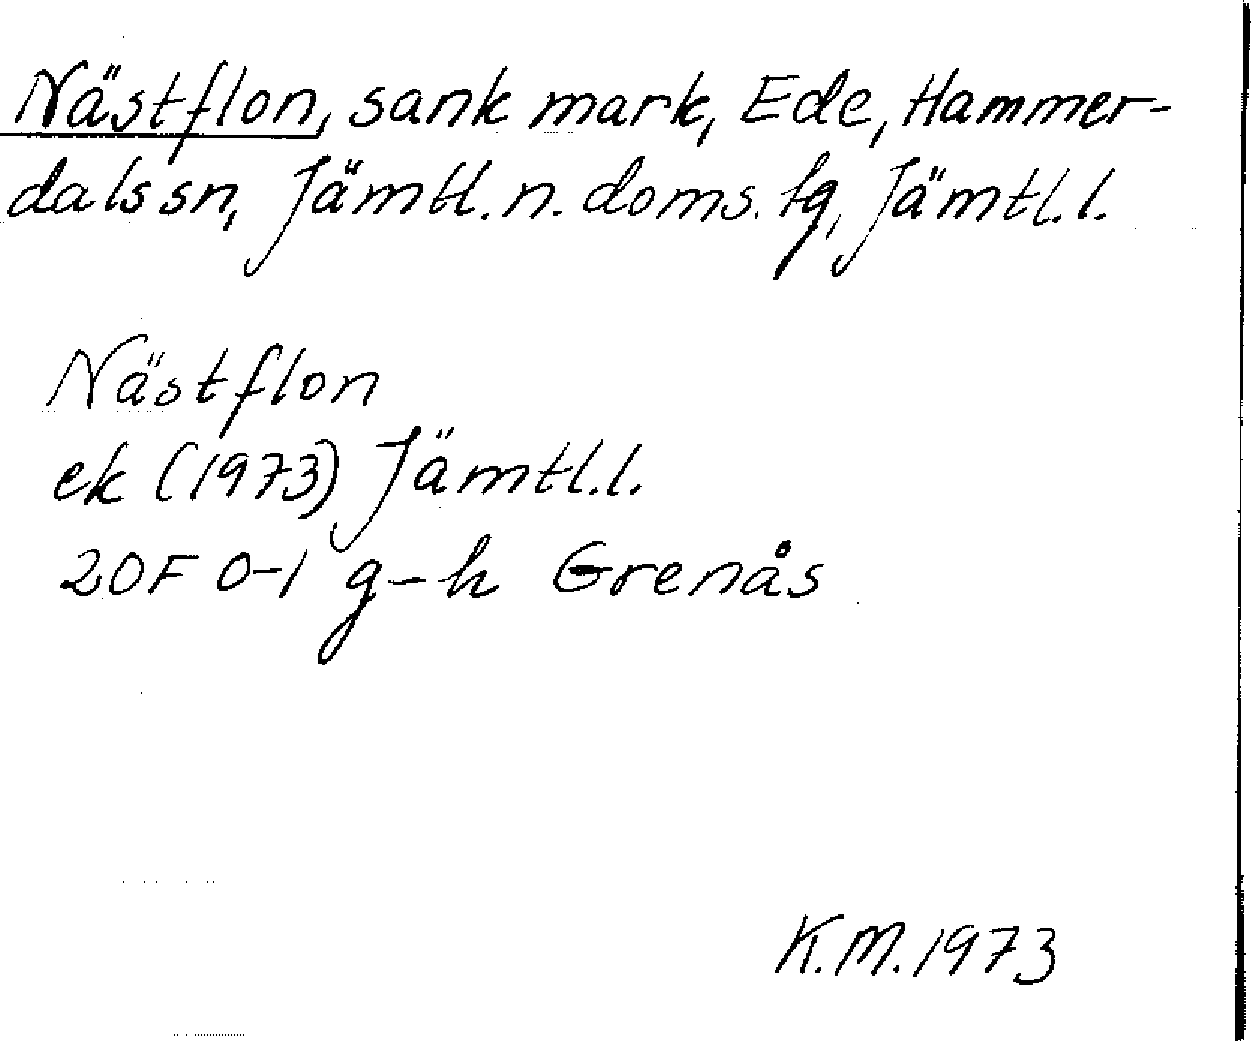 Nästflon, sank mark, Ede, Hammer-
dals sn, Jämtl. n. doms. fg, Jämtl. l.
Nästflon
ek (1973) Jämtl. l.
20F 0-1 g-h Grenås
K.M. 1973